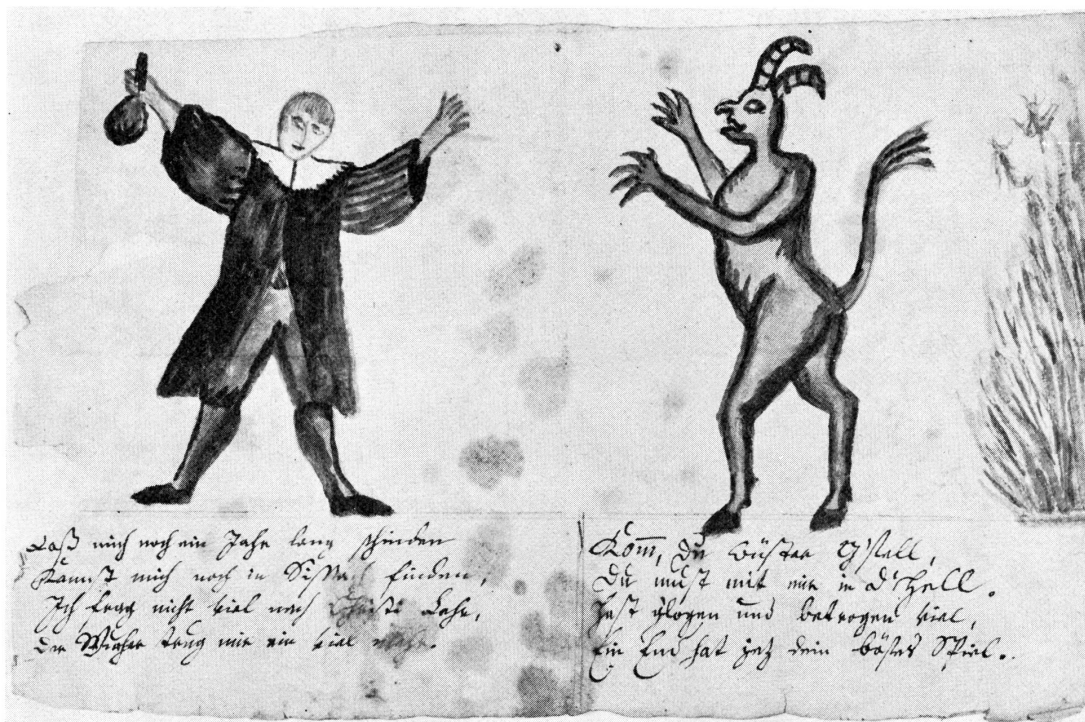 Laß mich noch ein Jahr lang schinden
Kannst mich noch in Sissach finden,
Ich frag nicht viel nach Christi Lehr,
Der Wucher trug mir ein viel mehr.
Kom̅, du wüster Gsell,
Du must mit mir in d'Hell.
Hast glogen und betrogen viel,
Ein End hat jetz dein böses Spiel.